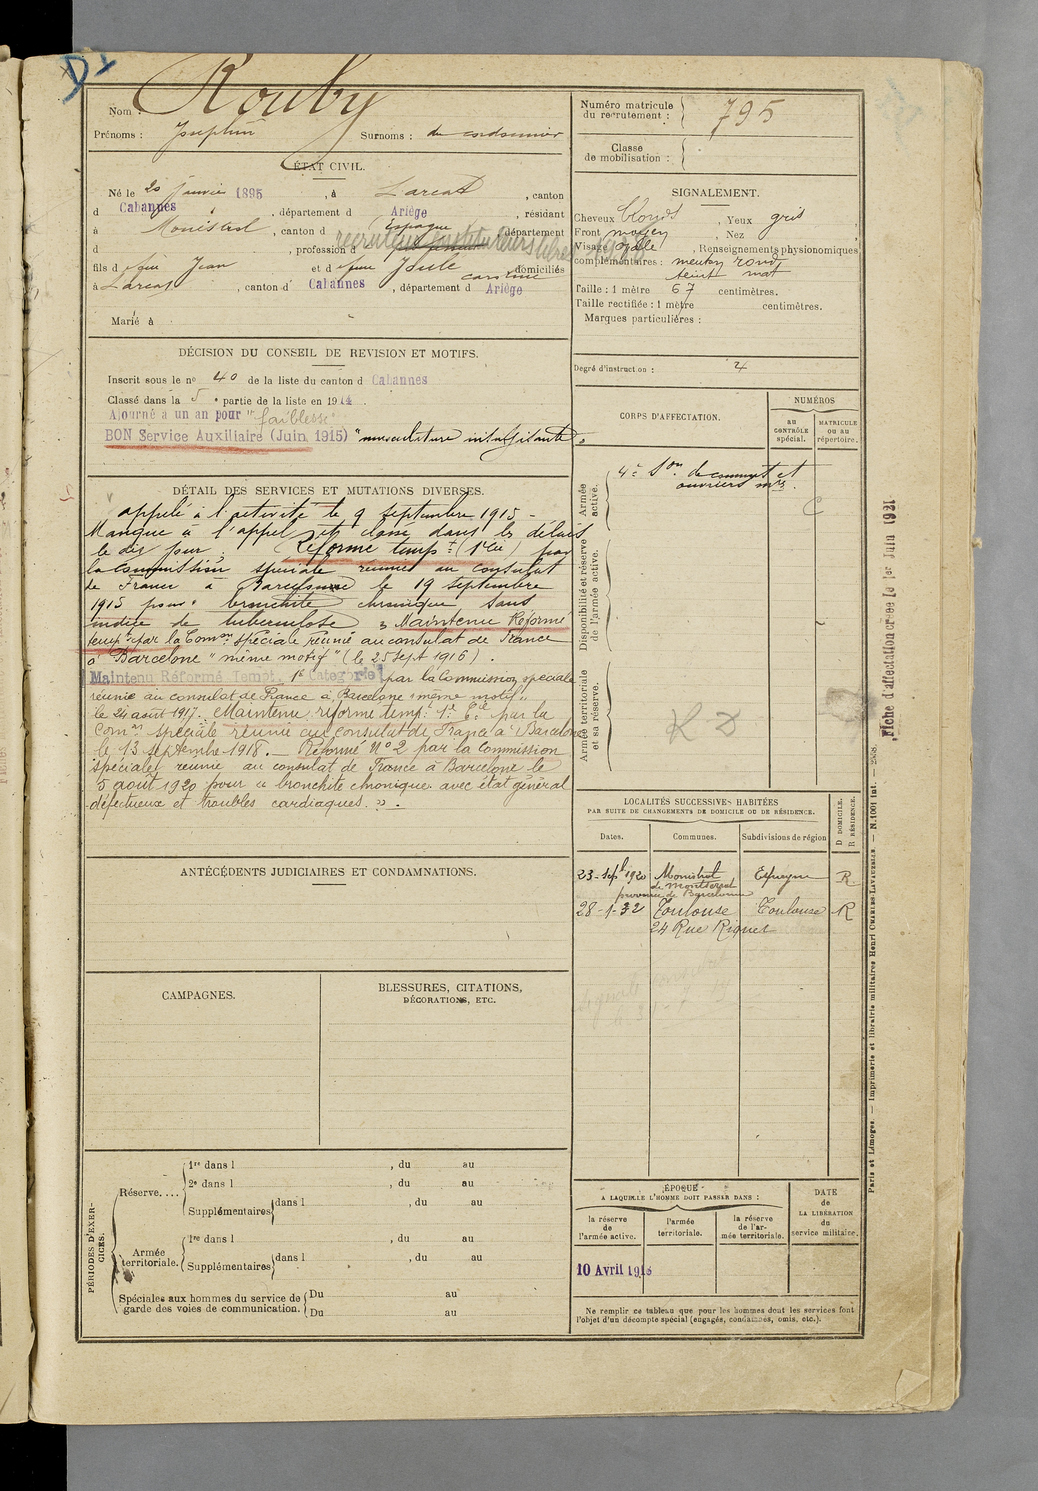 D1
Nom : Rouby
Prénoms : Josephin Surnoms : du cordonnier
ÉTAT CIVIL.
Né le 20 Janvier 1895, à Larcat, canton
d Cabannes, département d Ariège, résidant
à Monistrol, canton d Espagne, département
d , profession d
fils d feu Jean et d feue Julie domiciliés
à Larcat, canton d Cabannes, département d Ariège
Marié à
DÉCISION DU CONSEIL DE REVISION ET MOTIFS.
Inscrit sous le nº 40 de la liste du canton d Cabannes
Classé dans la 5e partie de la liste en 1914.
Ajourné a un an pour "faiblesse"
BON Service Auxiliaire (Juin 1915) "musculature insuffisante"
DÉTAIL DES SERVICES ET MUTATIONS DIVERSES.
appelé à l'activité le 9 septembre 1915 -
Manque à l'appel et classé dans les délais
le dis jour. Réformé tempre (1 Cie) par
la commission spéciale réunie au consulat
de France à Barcelone le 19 septembre
1915 pour "bronchite chronique, sans
indice de tuberculose" Maintenu Réformé
tempre par la Comon spéciale réunie au consulat de France
à Barcelone "même motif" (le 25 sept 1916).
Maintenu Réformé Tempt. 1e Catégorie par la Commission spéciale
réunie au consulat de France à Barcelone "même motif"
le 24 août 1917. Maintenu réforme temp. 1e Cie par la
Comon spéciale réunie au consulat de France à Barcelone
le 13 septembre 1918. — Réformé Nº 2 par la Commission
spéciale réunie au consulat de France à Barcelone le
5 août 1920 pour "bronchite chronique avec état général
défectueux et troubles cardiaques."
ANTÉCÉDENTS JUDICIAIRES ET CONDAMNATIONS.
CAMPAGNES.
BLESSURES, CITATIONS,
DÉCORATIONS, ETC.
PÉRIODES D'EXER-
CICES.
Réserve....
1re dans l , du au
2e dans l , du au
Supplémentaires dans l , du au
Armée
territoriale.
1re dans l , du au
Supplémentaires dans l , du au
Spéciales aux hommes du service de
garde des voies de communication.
Du au
Du au
Numéro matricule
du recrutement : 795
Classe
de mobilisation :
SIGNALEMENT.
Cheveux blonds, Yeux gris
Front moyen, Nez
Visage ovale, Renseignements physionomiques
complémentaires : menton rond
teint mat
Taille : 1 mètre 67 centimètres.
Taille rectifiée : 1 mètre centimètres.
Marques particulières :
Degré d'instruction : 4
CORPS D'AFFECTATION.
NUMÉROS
au
CONTRÔLE
spécial.
MATRICULE
ou au
répertoire.
Armée
active.
4e Son de commis et
ouvriers mres.
C
Disponibilité et réserve
de l'armée active.
Armée territoriale
et sa réserve.
RD
LOCALITÉS SUCCESSIVES HABITÉES
PAR SUITE DE CHANGEMENTS DE DOMICILE OU DE RÉSIDENCE.
Dates. Communes. Subdivisions de région
D DOMICILE.
R RÉSIDENCE.
23-Sept 1920 Monistrol Espagne R
de Montserrat
province de Barcelone
28-1-32 Toulouse Toulouse R
24 Rue Riquet
ÉPOQUE
A LAQUELLE L'HOMME DOIT PASSER DANS :
la réserve
de
l'armée active.
l'armée
territoriale.
la réserve
de l'ar-
mée territoriale.
DATE
de
LA LIBÉRATION
du
service militaire.
10 Avril 1918
Ne remplir ce tableau que pour les hommes dont les services font
l'objet d'un décompte spécial (engagés, condamnés, omis, etc.).
Fiche d'affectation créée le 1er Juin 1921
Paris et Limoges. — Imprimerie et librairie militaires Henri CHARLES-LAVAUZELLE. — N. 1001 int. — 2508.